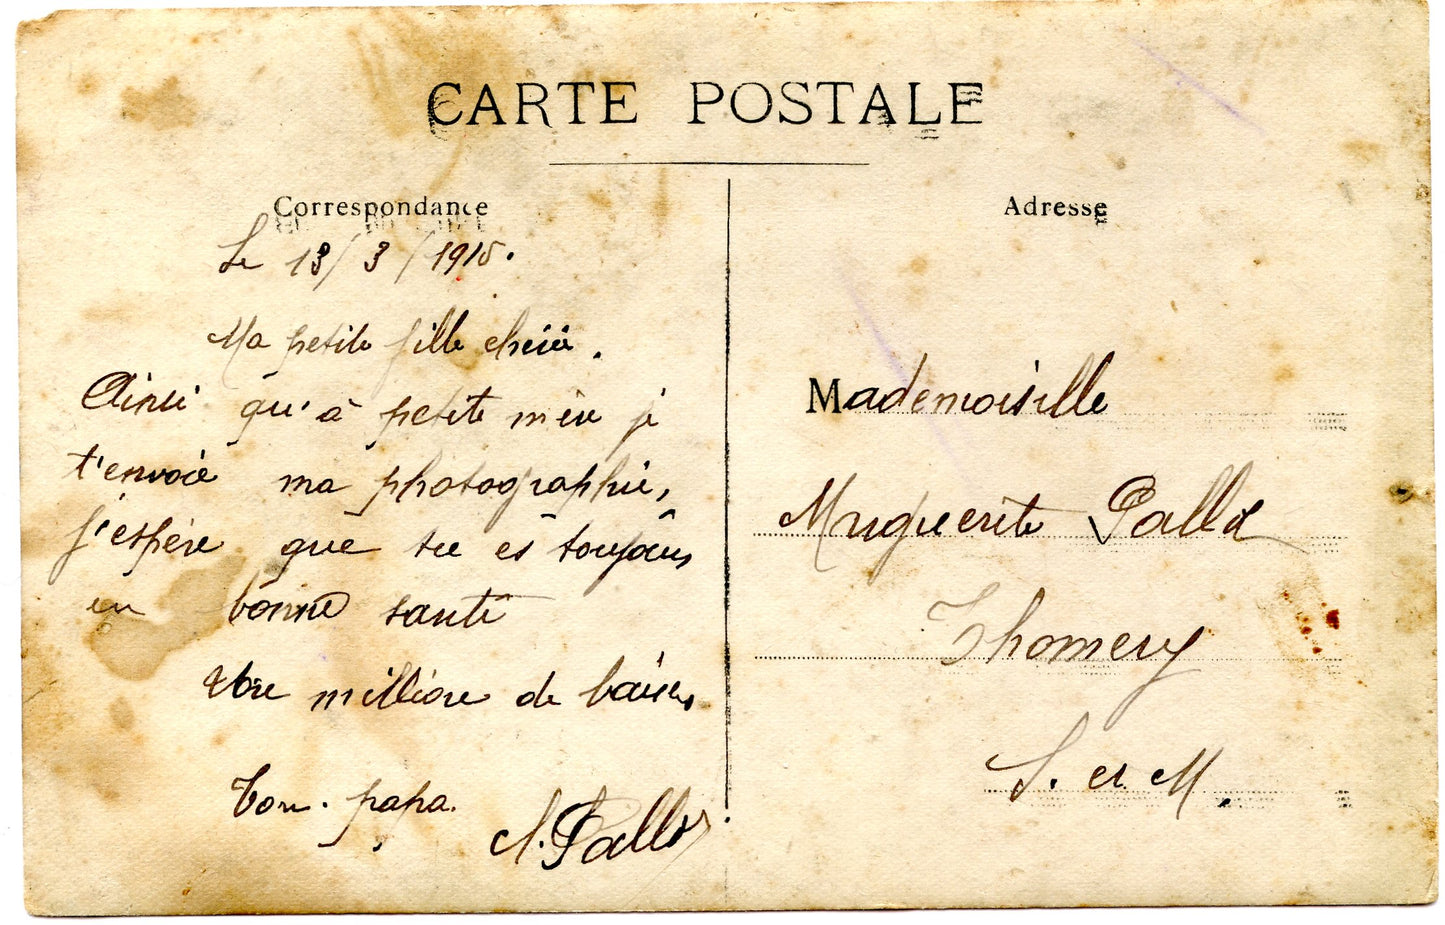 CARTE POSTALE
Correspondance
Le 13/3/1915.
Ma petite fille chérie.
Ainsi qu'à petite mère je
t'envoie ma photographie,
j'espère que tu es toujours
en bonne santé
Un million de baisers
Ton papa.
A. Pallo
Adresse
Mademoiselle
Marguerite Pallo
Thomery
S. et M.